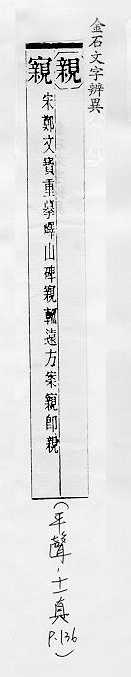 金石文字辨異
親
寴
宋鄭文寶重摹嶧山碑寴遠方案寴即親
(平聲.十一真 P.136)